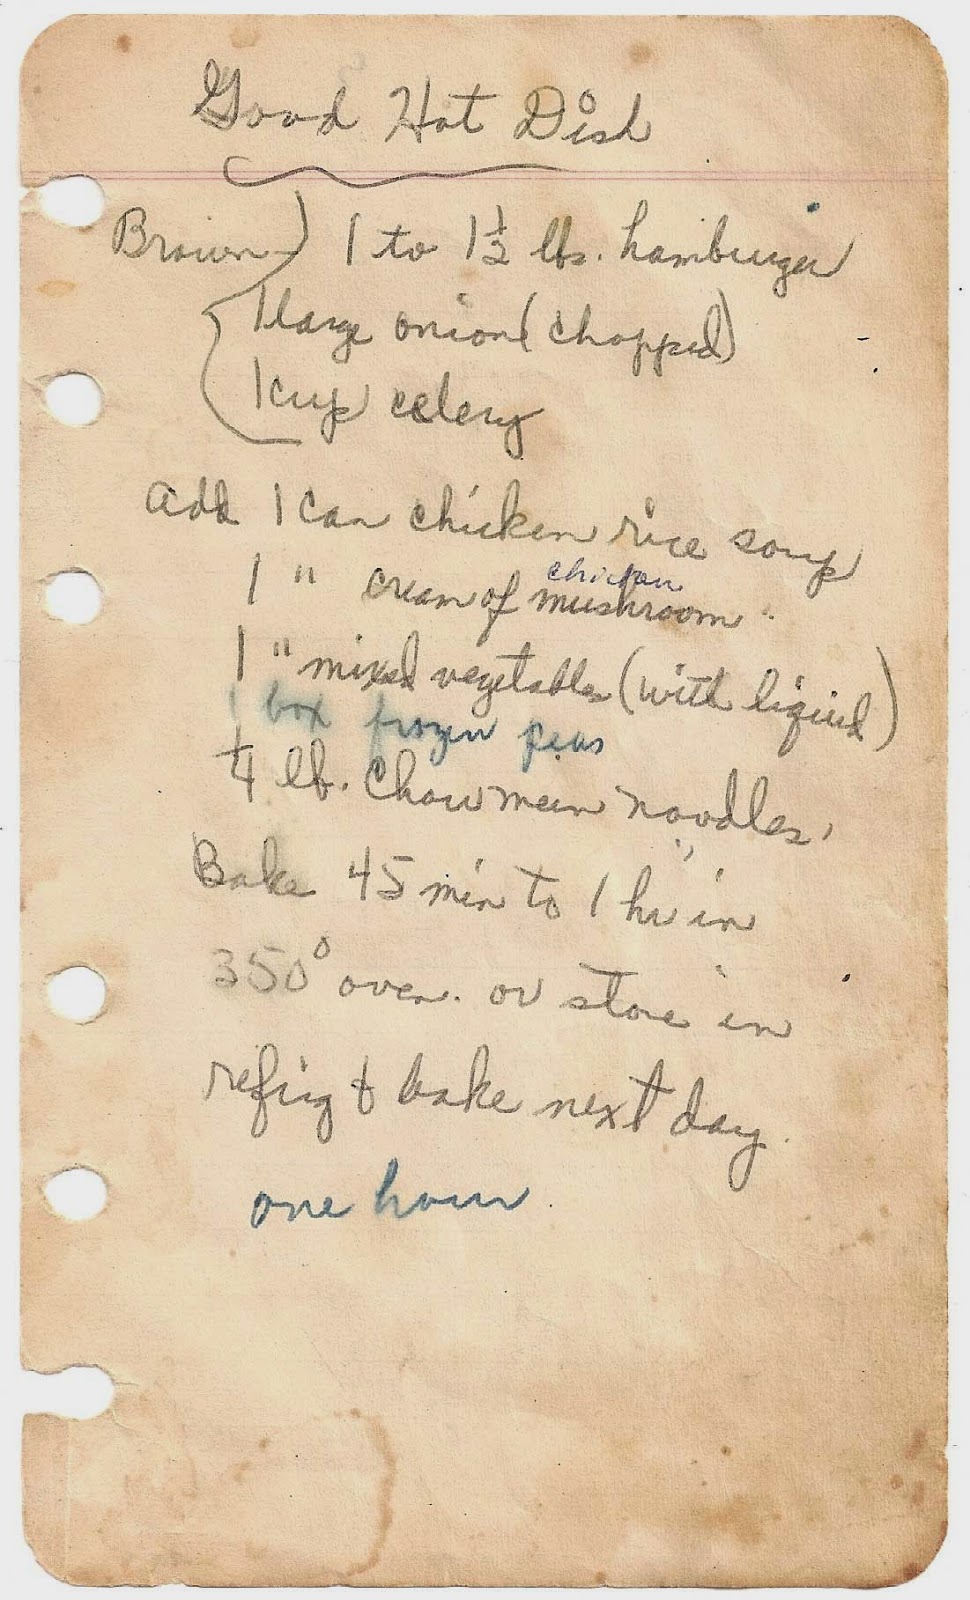 Good Hot Dish
Brown 1 to 1½ lbs. hamburger
1 large onion (chopped)
1 cup celery
add 1 can chicken rice soup
chicken
1 " cream of mushroom "
1 " mixed vegetables (with liquid)
1 box frozen peas
¼ lb. Chow mein noodles,
Bake 45 min to 1 hr in
350° oven. or store in
refrig & bake next day.
one hour